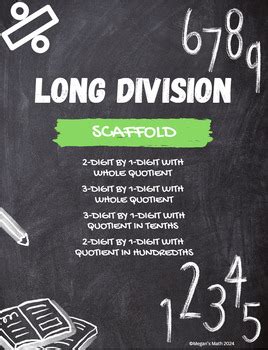 6789
LONG DIVISION
SCAFFOLD
2-DIGIT BY 1-DIGIT WITH
WHOLE QUOTIENT
3-DIGIT BY 1-DIGIT WITH
WHOLE QUOTIENT
3-DIGIT BY 1-DIGIT WITH
QUOTIENT IN TENTHS
2-DIGIT BY 1-DIGIT WITH
QUOTIENT IN HUNDREDTHS
12345
©Megan's Math 2024